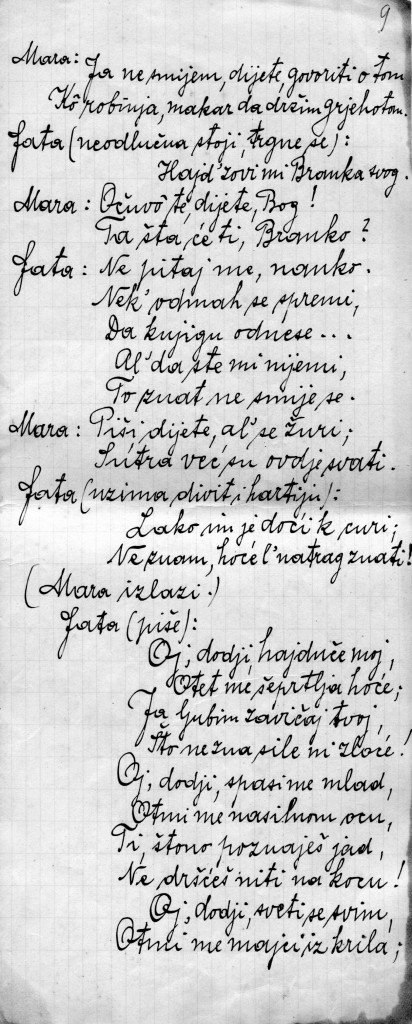 9
Mara: Ja ne smijem, dijete, govoriti o tom
Kô robinja, makar da držim grjehotom.
Fata (neodlučna stoji, trgne se):
Hajd' zovi mi Branka svog.
Mara: Očuvô te, dijete, Bog!
Ta šta će ti, Branko?
Fata: Ne pitaj me, nanko.
Nek' odmah se spremi,
Da knjigu odnese...
Al' da ste mi nijemi,
To znat ne smije se.
Mara: Piši, dijete, al' se žuri;
Sutra već su ovdje svati.
Fata (uzima divit i hartiju):
Lako im je doći k curi;
Ne znam, hoće l' natrag znati!
(Mara izlazi.)
Fata (piše):
Oj, dodji, hajduče moj,
Otet me šeprtlja hoće;
Ja ljubim zavičaj tvoj,
Što ne zna sile ni zloće!
Oj, dodji, spasi me mlad,
Otmi me nasilnom ocu,
Ti, štono poznaješ jad,
Ne dršćeš niti na kocu!
Oj, dodji, sveti se svim,
Otmi me majci iz krila;